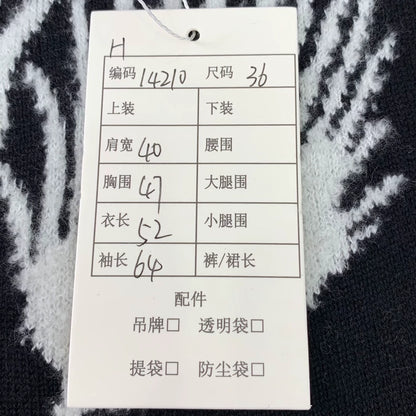 H
编码 14210 尺码 36
上装 下装
肩宽 40 腰围
胸围 47 大腿围
衣长 52 小腿围
袖长 64 裤/裙长
配件
吊牌□ 透明袋□
提袋□ 防尘袋□